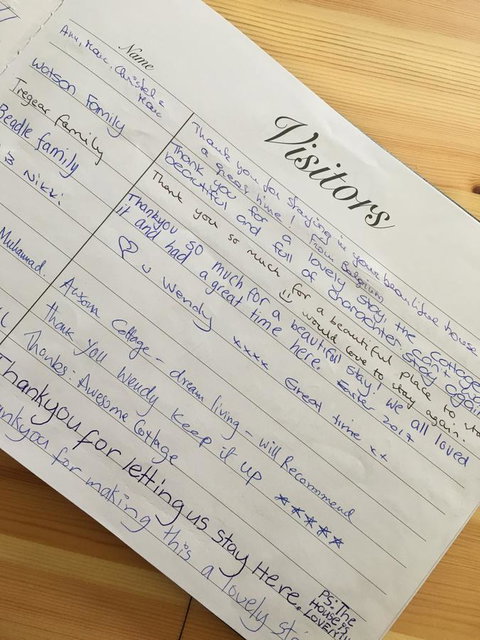 Visitors
Name
Ann, Marc, Christel &
Marc
Thank you for staying in your beautiful house
a great time! From Belgium
Watson Family
Thank you for a lovely stay, the cottage
beautiful and full of character can't
stay again
Tregear Family
Thank you so much for a beautiful place to sta
would love to stay again.
Beadle family
Thankyou so much for a beautiful stay! we all loved
it and had a great time here. Easter 2017
& Nikki
u Wendy xxxx Great time xx
Muhamad.
Awsom Cottage - dream living - will Recommend
thank you Wendy keep it up *****
Thanks: Awesome Cottage
Thankyou for letting us stay Here.
PS: The
House is
LOVELY
ankyou for making this a lovely sta